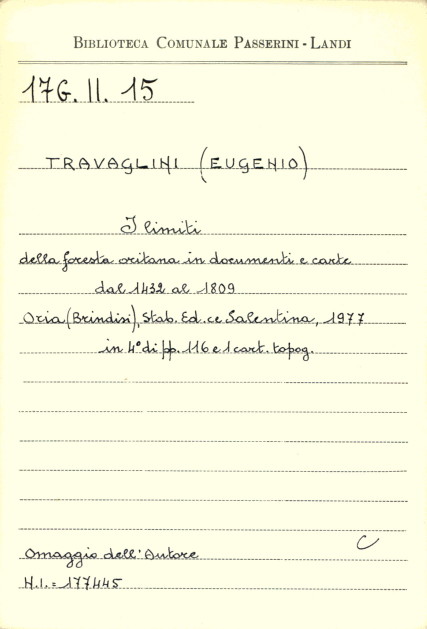 BIBLIOTECA COMUNALE PASSERINI - LANDI
17G. II. 15
TRAVAGLINI (EUGENIO)
I limiti
della foresta oritana in documenti e carte
dal 1432 al 1809
Oria (Brindisi), Stab. Ed.ce Salentina, 1977
in 4° di pp. 116 e 1 cart. topog.
C
Omaggio dell'Autore
N.I. = 177445